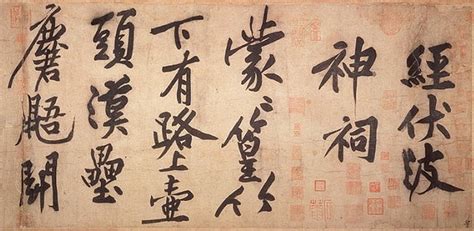 經伏波
神祠
蒙〻篁竹
下有路上壺
頭漢壘
麏鼯鬭